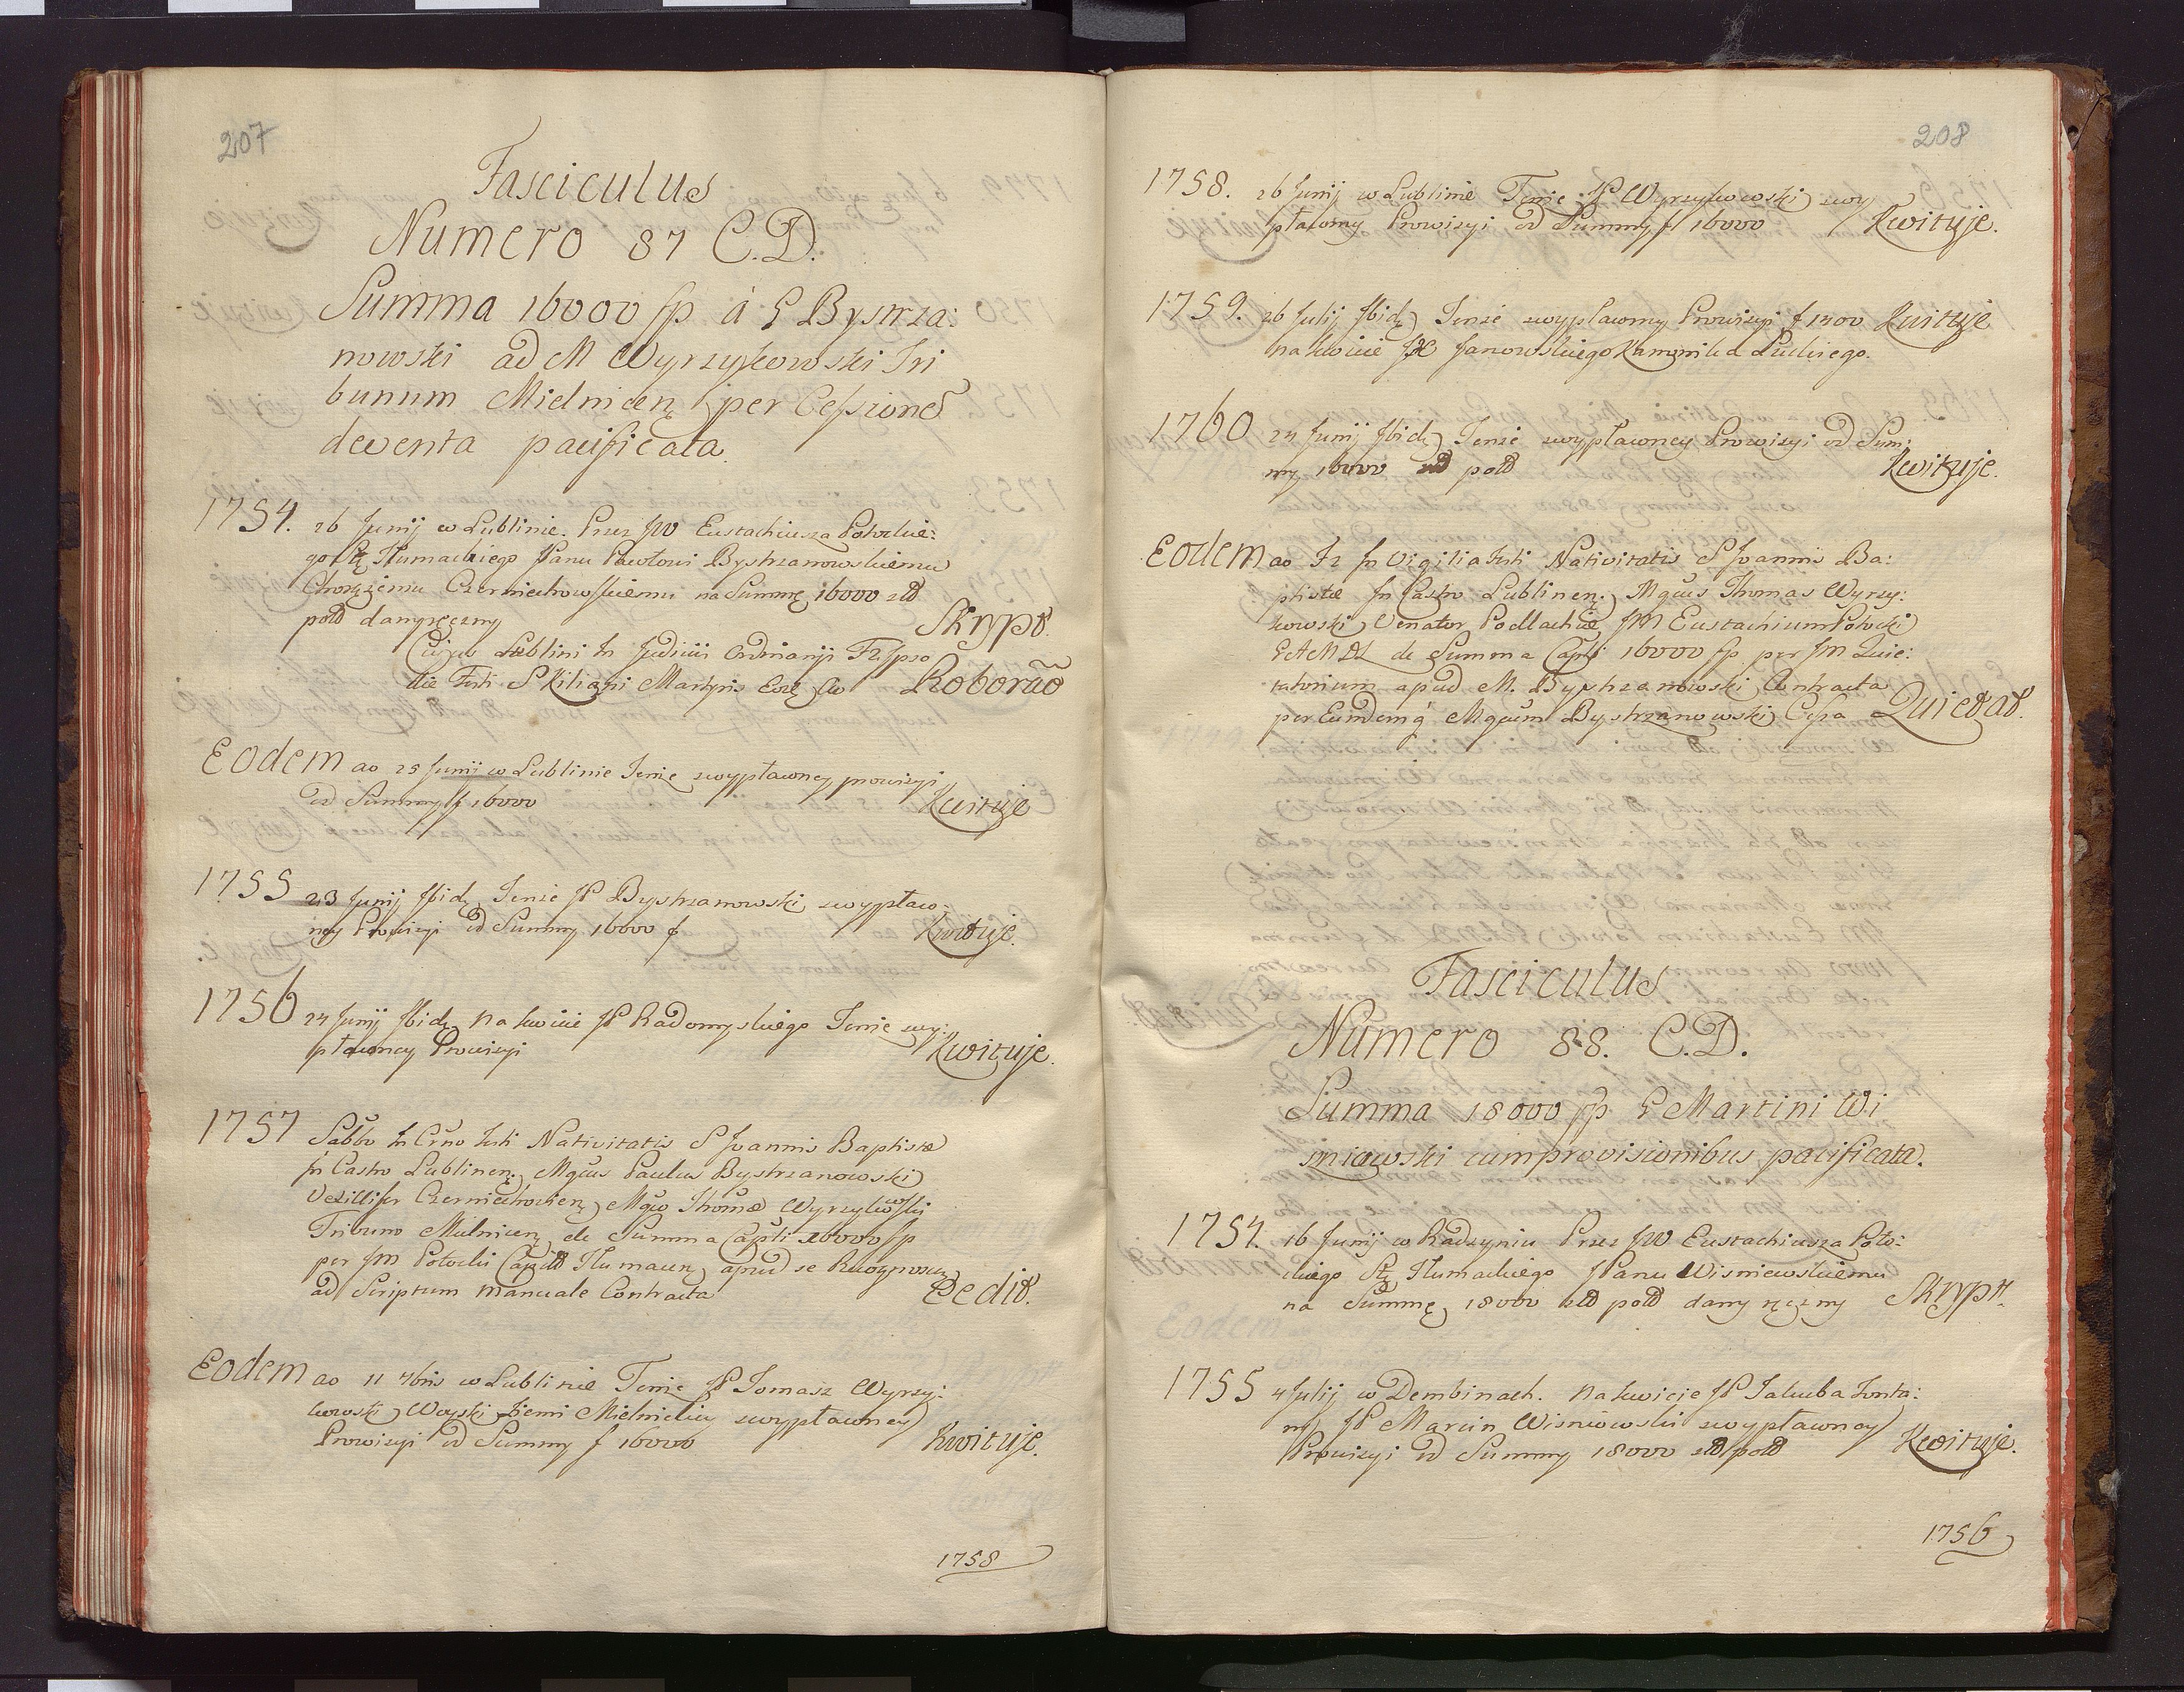 207
Fasciculus
Numero 87 C.D.
Summa 16000 fp á G Bystrza:
nowski ad M Wyrzykowski Tri
bunum Mielnicen per Cessione
deventa pacificata
1754. 26 Junij w Lublinie. Przez JW Eustachiusza Potockie:
go Stę Tłumackiego JPanu Pawłowi Bystrzanowskiemu
Chorążemu Czerniechowskiemu na Summę 16000 złł
polł dany ręczny Skrypt.
Lublini In Judicii Ordinarijs
die Festi S Kiliani Martyris Roborão
Eodem ao 25 Junij w Lublinie Tenże zwypłaconey prowizyi
od Summy f 16000 Kwituje
1755 23 Junij Ibidę Tenże JP Bystrzanowski zwypłaco:
ney Prowizyi od Summy 16000 f Kwituje.
1756 24 Junij Ibidę na kwicie JP Radomyskiego Tenże zwy:
płaconey Prowizyi Kwituje.
1757 Sabbo In Crno Festi Nativitatis S Joannis Baptistæ
In Castro Lublinen: Mgcus Paulus Bystrzanowski
Vexillifer Czerniechovien Mgco Thomæ Wyrzykowski
Tribuno Mielnicen de Summa Capli 16000 fp
per JM Potocki Capit Tłumacen apud se Recognoscen
ad Scriptum Manuale Contracta Cedit.
Eodem ao 11 7bris w Lublinie Tenże JP Tomasz Wyrzy:
kowski Woyski Ziemi Mielnickiey zwypłaconey
Prowizyi od Summy f 16000 Kwituje.
1758
208
1758. 26 Junij w Lublinie Tenże JP Wyrzykowski zwy
płaconey Prowizyi od Summy f 16000 Kwituje.
1759. 26 Julij Ibidę Tenże zwypłaconey Prowizyi f 1300 Kwituje
na kwicie JX Janowskiego Kanonika Łuckiego.
1760 24 Junij Ibidę Tenże zwypłaconey Prowizyi od Sum:
my 16000 złł polł Kwituje.
Eodem ao Fr In Vigilia Festi Nativitatis S Joannis Ba:
ptistæ In Castro Lublinen: Mgcus Thomas Wyrzy:
kowski Venator Podlachiæ JM Eustachium Potocki
GAMDL de Summa Capli 16000 fp per JM Quie:
tatorium apud M. Bystrzanowski Contracta
per Eundemq Mgcum Bystrzanowski Cessa Quietat.
Fasciculus
Numero 88. C.D.
Summa 18000 fp G Martini Wi
sniowski cum provisionibus pacificata.
1754. 16 Junij w Radzyniu Przez JW Eustachiusza Poto:
ckiego Stę Tłumackiego JPanu Wisniewskiemu
na Summę 18000 złł polł dany ręczny Skrypt.
1755 4 Julij w Dembinach. na kwicie JP Jakuba
JP Marcin Wisniowski zwypłaconey
Prowizyi od Summy 18000 złł polł Kwituje.
1756